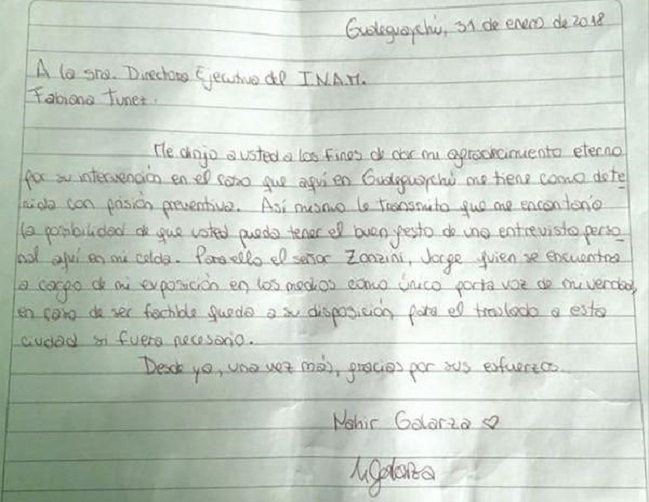 Gualeguaychú, 31 de enero de 2018
A la sra. Directora Ejecutiva del I.N.A.M.
Fabiana Tunez.
Me dirijo a usted a los fines de dar mi agradecimiento eterno
por su intervención en el caso que aquí en Gualeguaychú me tiene como dete
nida con prisión preventiva. Así mismo le transmito que me encantaría
la posibilidad de que usted pueda tener el buen gesto de una entrevista perso
nal aquí en mi celda. Para ello el señor Zonzini, Jorge quien se encuentra
a cargo de mi exposición en los medios como único porta voz de mi verdad,
en caso de ser factible queda a su disposición, para el traslado a esta
ciudad si fuera necesario.
Desde ya, una vez más, gracias por sus esfuerzos.
Nahir Galarza ♡
N Galarza